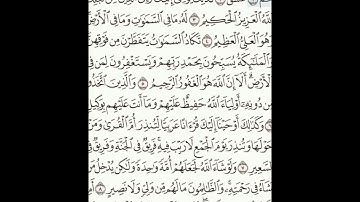 ٱللَّهُ ٱلْعَزِيزُ ٱلْحَكِيمُ ٣ لَهُۥ مَا فِى ٱلسَّمَٰوَٰتِ وَمَا فِى ٱلْأَرْضِ
وَهُوَ ٱلْعَلِىُّ ٱلْعَظِيمُ ٤ تَكَادُ ٱلسَّمَٰوَٰتُ يَتَفَطَّرْنَ مِن فَوْقِهِنَّ
وَٱلْمَلَٰٓئِكَةُ يُسَبِّحُونَ بِحَمْدِ رَبِّهِمْ وَيَسْتَغْفِرُونَ لِمَن
ٱلْأَرْضِ أَلَآ إِنَّ ٱللَّهَ هُوَ ٱلْغَفُورُ ٱلرَّحِيمُ ٥ وَٱلَّذِينَ ٱتَّخَذُوا۟
مِن دُونِهِۦٓ أَوْلِيَآءَ ٱللَّهُ حَفِيظٌ عَلَيْهِمْ وَمَآ أَنتَ عَلَيْهِم بِوَكِيلٍ
وَكَذَٰلِكَ أَوْحَيْنَآ إِلَيْكَ قُرْءَانًا عَرَبِيًّا لِّتُنذِرَ أُمَّ ٱلْقُرَىٰ وَمَنْ
حَوْلَهَا وَتُنذِرَ يَوْمَ ٱلْجَمْعِ لَا رَيْبَ فِيهِ فَرِيقٌ فِى ٱلْجَنَّةِ وَفَرِيقٌ فِى
ٱلسَّعِيرِ ٧ وَلَوْ شَآءَ ٱللَّهُ لَجَعَلَهُمْ أُمَّةً وَٰحِدَةً وَلَٰكِن يُدْخِلُ مَن
يَشَآءُ فِى رَحْمَتِهِۦ وَٱلظَّٰلِمُونَ مَا لَهُم مِّن وَلِىٍّ وَلَا نَصِيرٍ ٨